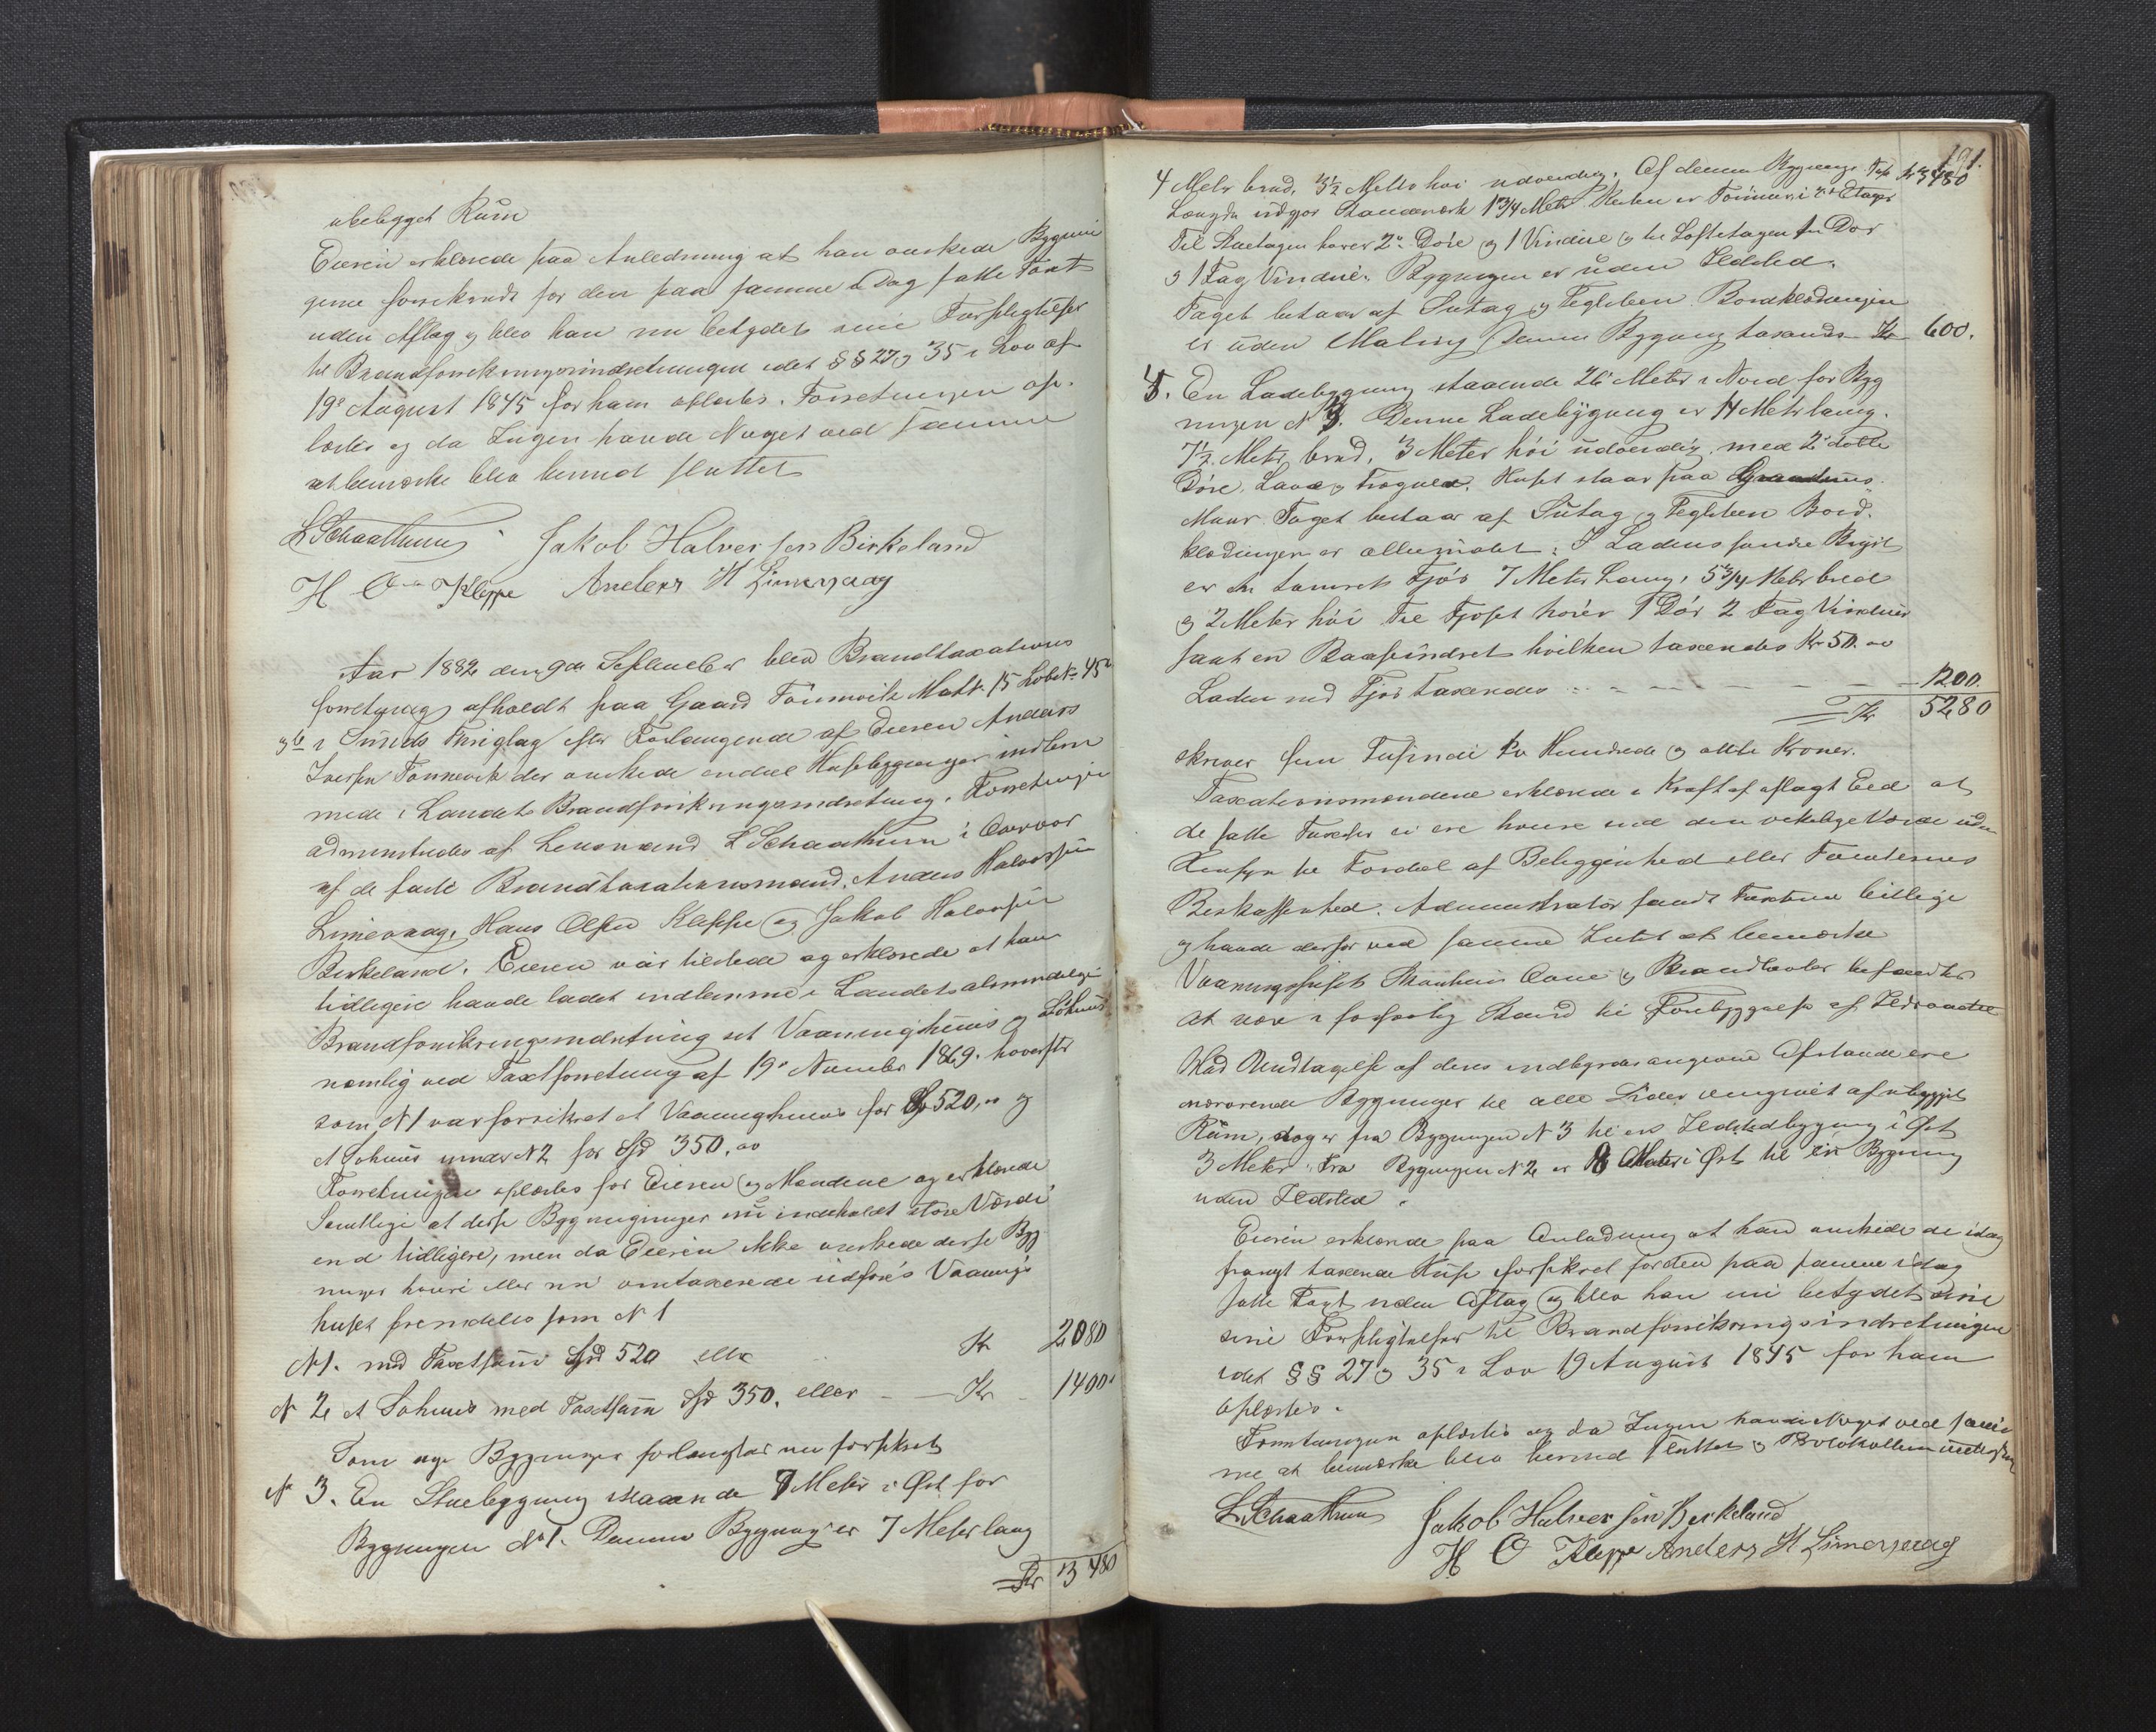 ubebygget Rum
Eieren erklærede paa Anledning at han ønskede Bygnin
gerne forsikrede for den paa samme i Dag satte Taxt
uden Aflag og blev han nu betydet sine Forpligtelser
til Brandforsikringsindretningen idet §§ 27 og 35 i Lov af
19de August 1845 for ham oplæstes. Forretningen op-
læstes og da Ingen havde Noget ved samme
at bemærke blev hermed sluttet
L Schaathun Jakob Halversen Birkeland
H O Kleppe Anders H Limesvaag
Aar 1882 den 9de September blev Brandtaxations
forretning afholdt paa Gaard Tönnevik Matr. 15 Löbe No 45
i Sunds Thinglag efter Forlangende af Eieren Anders
Iversen Tönnevik der ønskede endeel Husebygninger indlem
mede i Landets Brandforsikringsindretning. Forretningen
administredes af Lensmand L Schaathun i Overvær
af de faste Brandtaxationsmænd, Anders Halvorsen
Limesvaag, Hans Olsen Kleppe og Jakob Halvorsen
Birkeland. Eieren var tilstede og erklærede at han
tidligere havde ladet indlemme i Landets almindelige
Brandforsikringsindretning et Vaaningshuus og Söhuus
nemlig ved Taxtforretning af 19de November 1869. hvorefter
som N 1 var forsikret et Vaaningshuus for Spd 520,00 og
et Söhuus under N 2 for Spd 350,00
Forretningen oplæstes for Eieren og Mændene og erklærede
Samtlige at disse Bygninger nu indeholdt större Værdi
end tidligere, men da Eieren ikke ønskede disse Byg
ninger höiere eller nu omtaxerede udføres Vaanings
huset fremdeles som N 1
N 1. med Taxtsum Spd 520 eller Kr 2080
N 2 et Söhuus med Taxtsum Spd 350. eller - Kr - 1400
Som nye Bygninger forlangtes nu forsikret
No 3. En Stuebygning staaende 7 Meter i Øst for
Bygningen No 1. Denne Bygning er 7 Meter lang
Kr 3480
191.
4 Meter bred, 3½ Meter höi udvendig. Af denne Bygnings Tr. Kr 3480
Længde udgjør Standværk 1¾ Meter. Resten er Tömmer i 2de Etager
Til Stuetagen hører 2de Døre og 1 Vindue og til Loftetagen en Dør
og 1 Fag Vindue. Bygningen er uden Ildsted.
Taget bestaar af Sutag og Teglsten Bordklædningen
er uden Maling Denne Bygning taxeredes Kr 600.
4. En Ladebygning staaende 26 Meter i Nord for Byg
ningen N 3. Denne Ladebygning er 14 Meter lang.
7½ Meter bred, 3 Meter höi udvendig, med 2de dobbelte
Døre, Lave og Trægulv. Huset staar paa
Muur Taget bestaar af Sutag og Teglsten Bord-
klædningen er allermalet. I Ladens søndre
er en tømret Fjös 7 Meter Lang, 5¾ Meter bred
og 2 Meter höi Til Fjöset hører 1 Dör 2 Fag Vinduer
samt en Baaseindret hvilken taxeredes Kr 50.00
Laden med Fjös Taxeredes - - - - - 1200.
Kr 5280
skriver fem Tusinde to Hundrede og otte Kroner.
Taxationsmændene erklærede i Kraft af aflagt Eed at
de satte Taxter ei ere høiere end den virkelige Værdi uden
Hensyn til Fordeel af Beliggenhed eller Tomternes
Beskaffenhed. Administrator fandt Taxterne billige
og havde derfor ved samme Intet at bemærke
Vaaningshuset Skorsten Ovne og Brandtavler befandtes
at være i forsvarlig Stand til Forebyggelse af Ildsvaade
Med Undtagelse af deres indbyrdes angivne Afstande ere
nærværende Bygninger til alle Sider omgivet af ubygget
Rum, dog er fra Bygningen N 3 til en Ildstedbygning i Øst
3 Meter. Fra Bygningen N 2 er 8 Meter i Øst til en Bygning
uden Ildsted.
Eieren erklærede paa Anledning at han ønskede de idag
fremgt taxerede Huse forsikret for den paa samme i dag
satte Taxt uden Aflag og blev han nu betydet sine
sine Forpligtelser til Brandforsikringsindretningen
idet §§ 27 og 35 i Lov 19 August 1845 for ham
oplæstes.
Forretningen oplæstes og da Ingen havde Noget ved sam
me at bemærke blev hermed sluttet og Protokollen
L Schaathun Jakob Halversen Birkeland
H O Kleppe Anders H Limesvaag